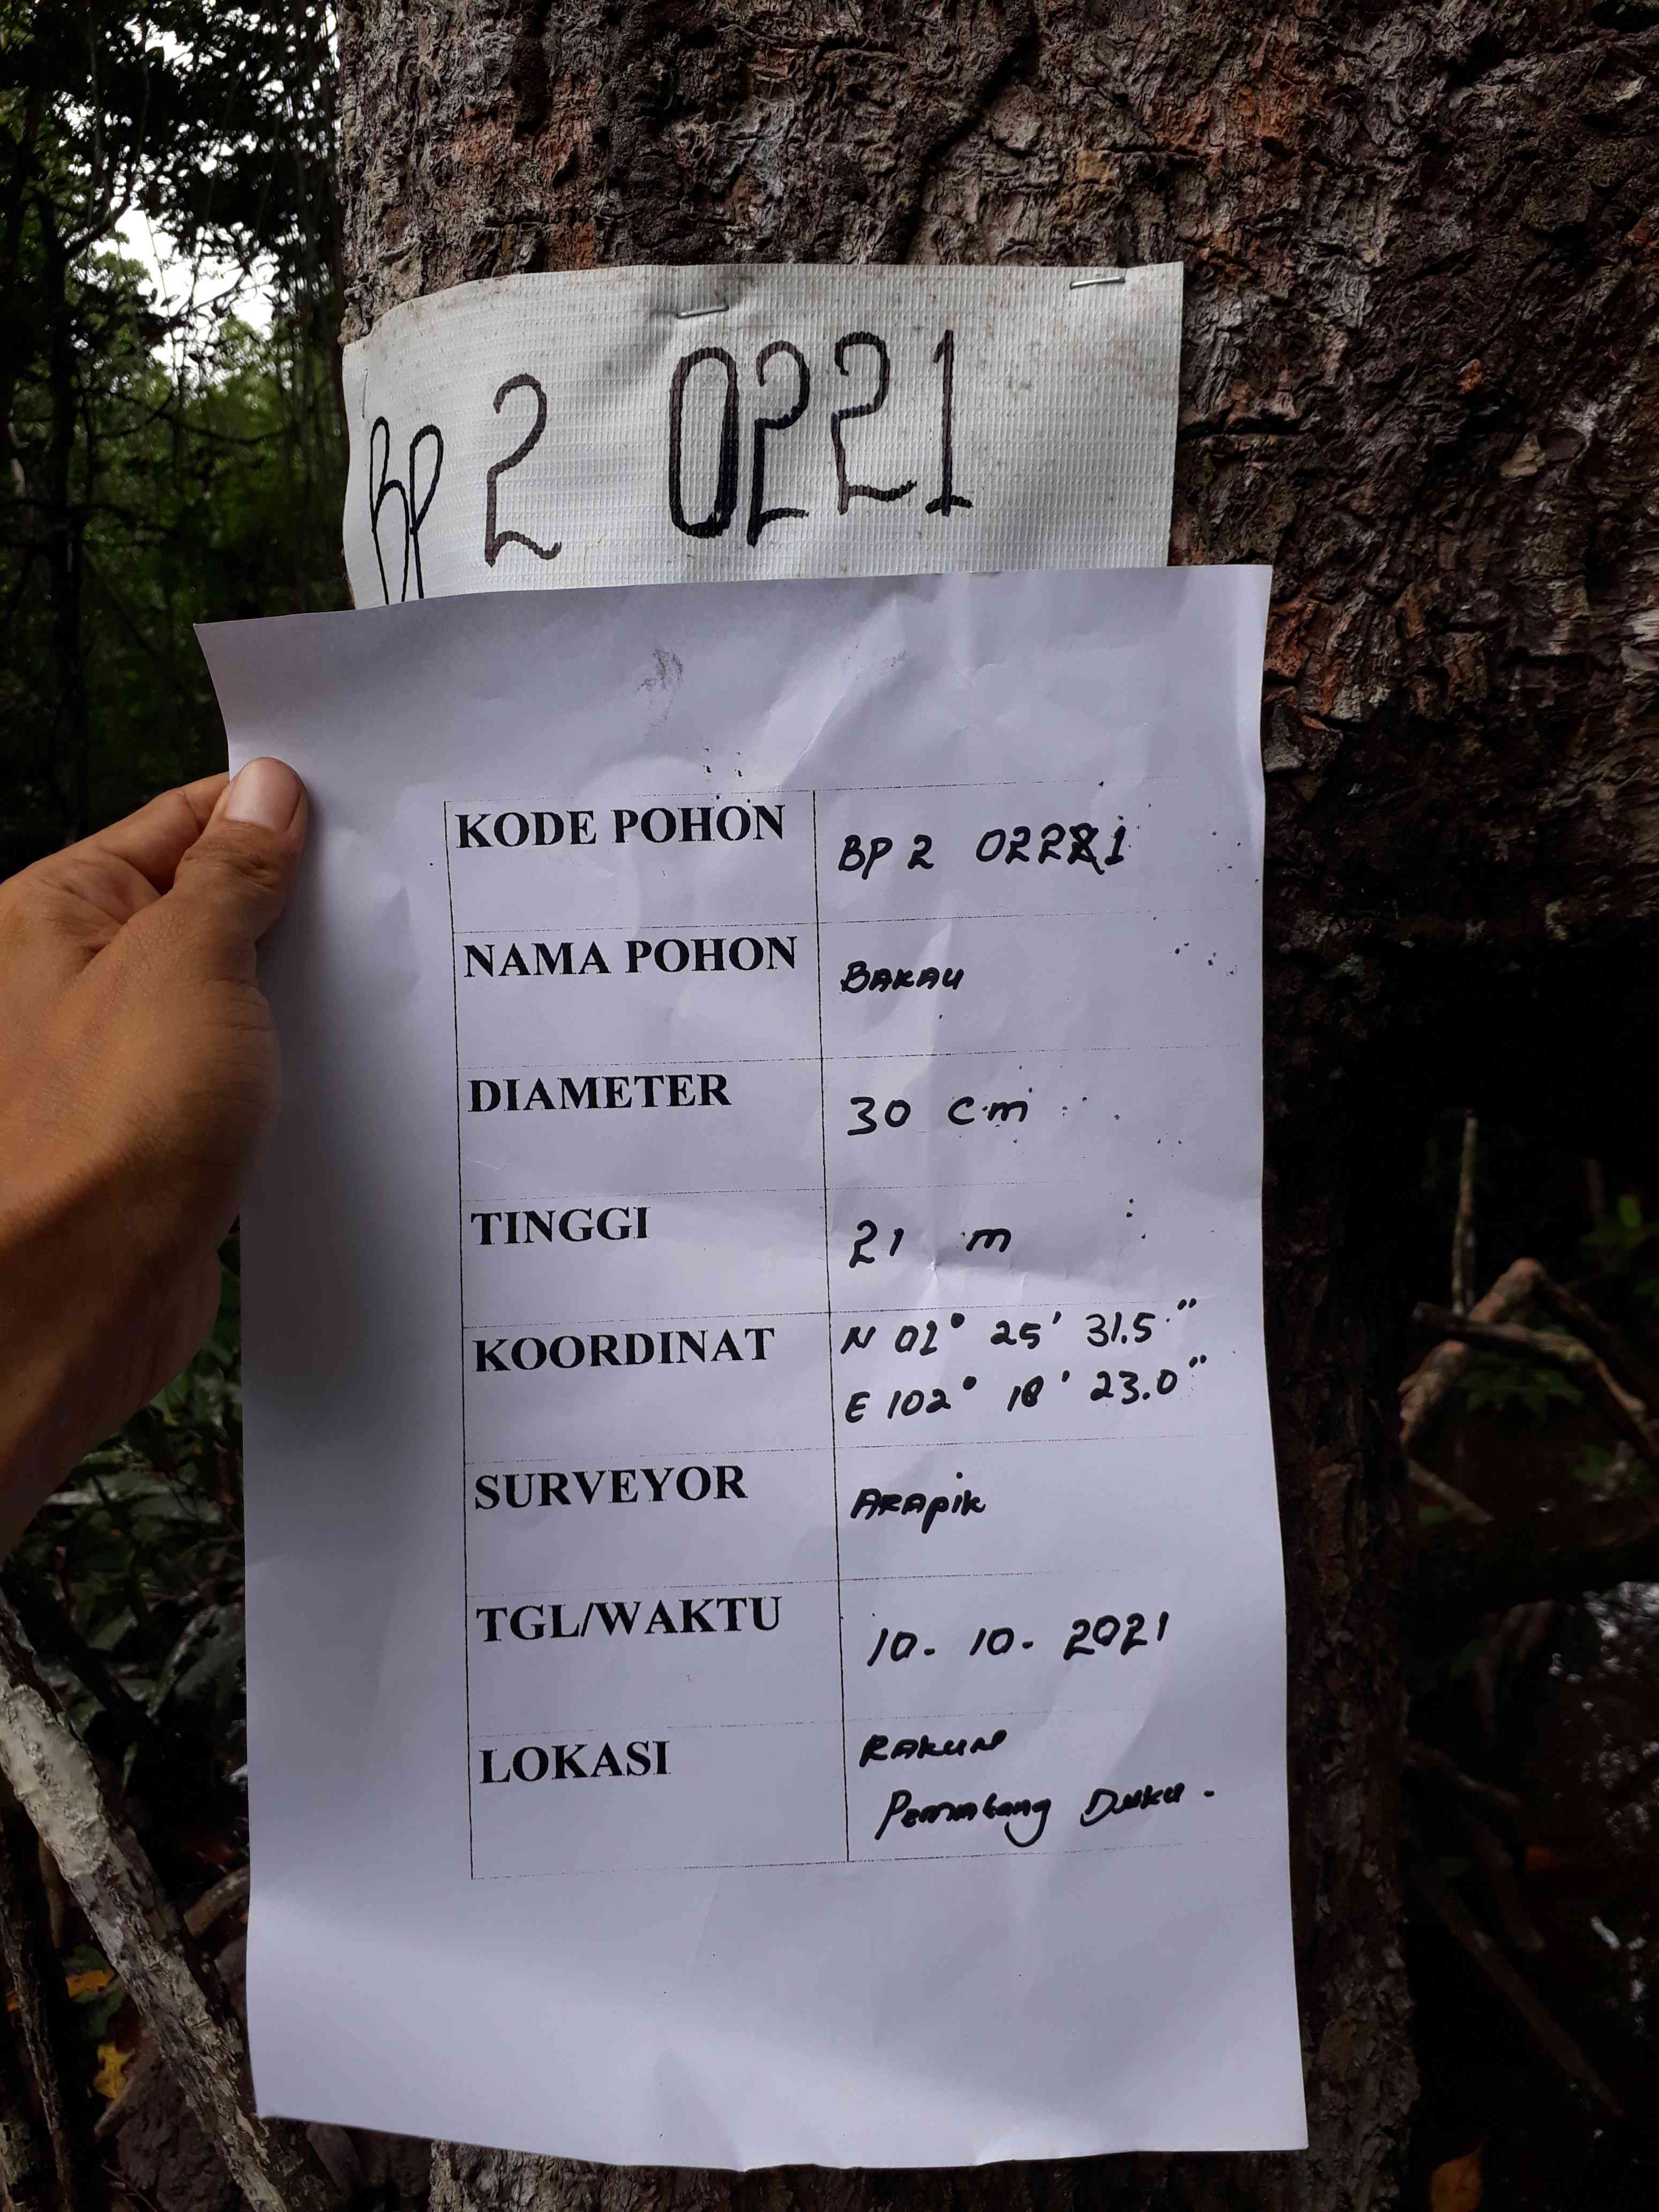 BP 2 0221
KODE POHON BP 2 0221
NAMA POHON BAKAU
DIAMETER 30 cm
TINGGI 21 m
KOORDINAT N 01° 25' 31.5"
E 102° 18' 23.0"
SURVEYOR ARApik
TGL/WAKTU 10. 10. 2021
LOKASI RAKUN
Pematang Duku.